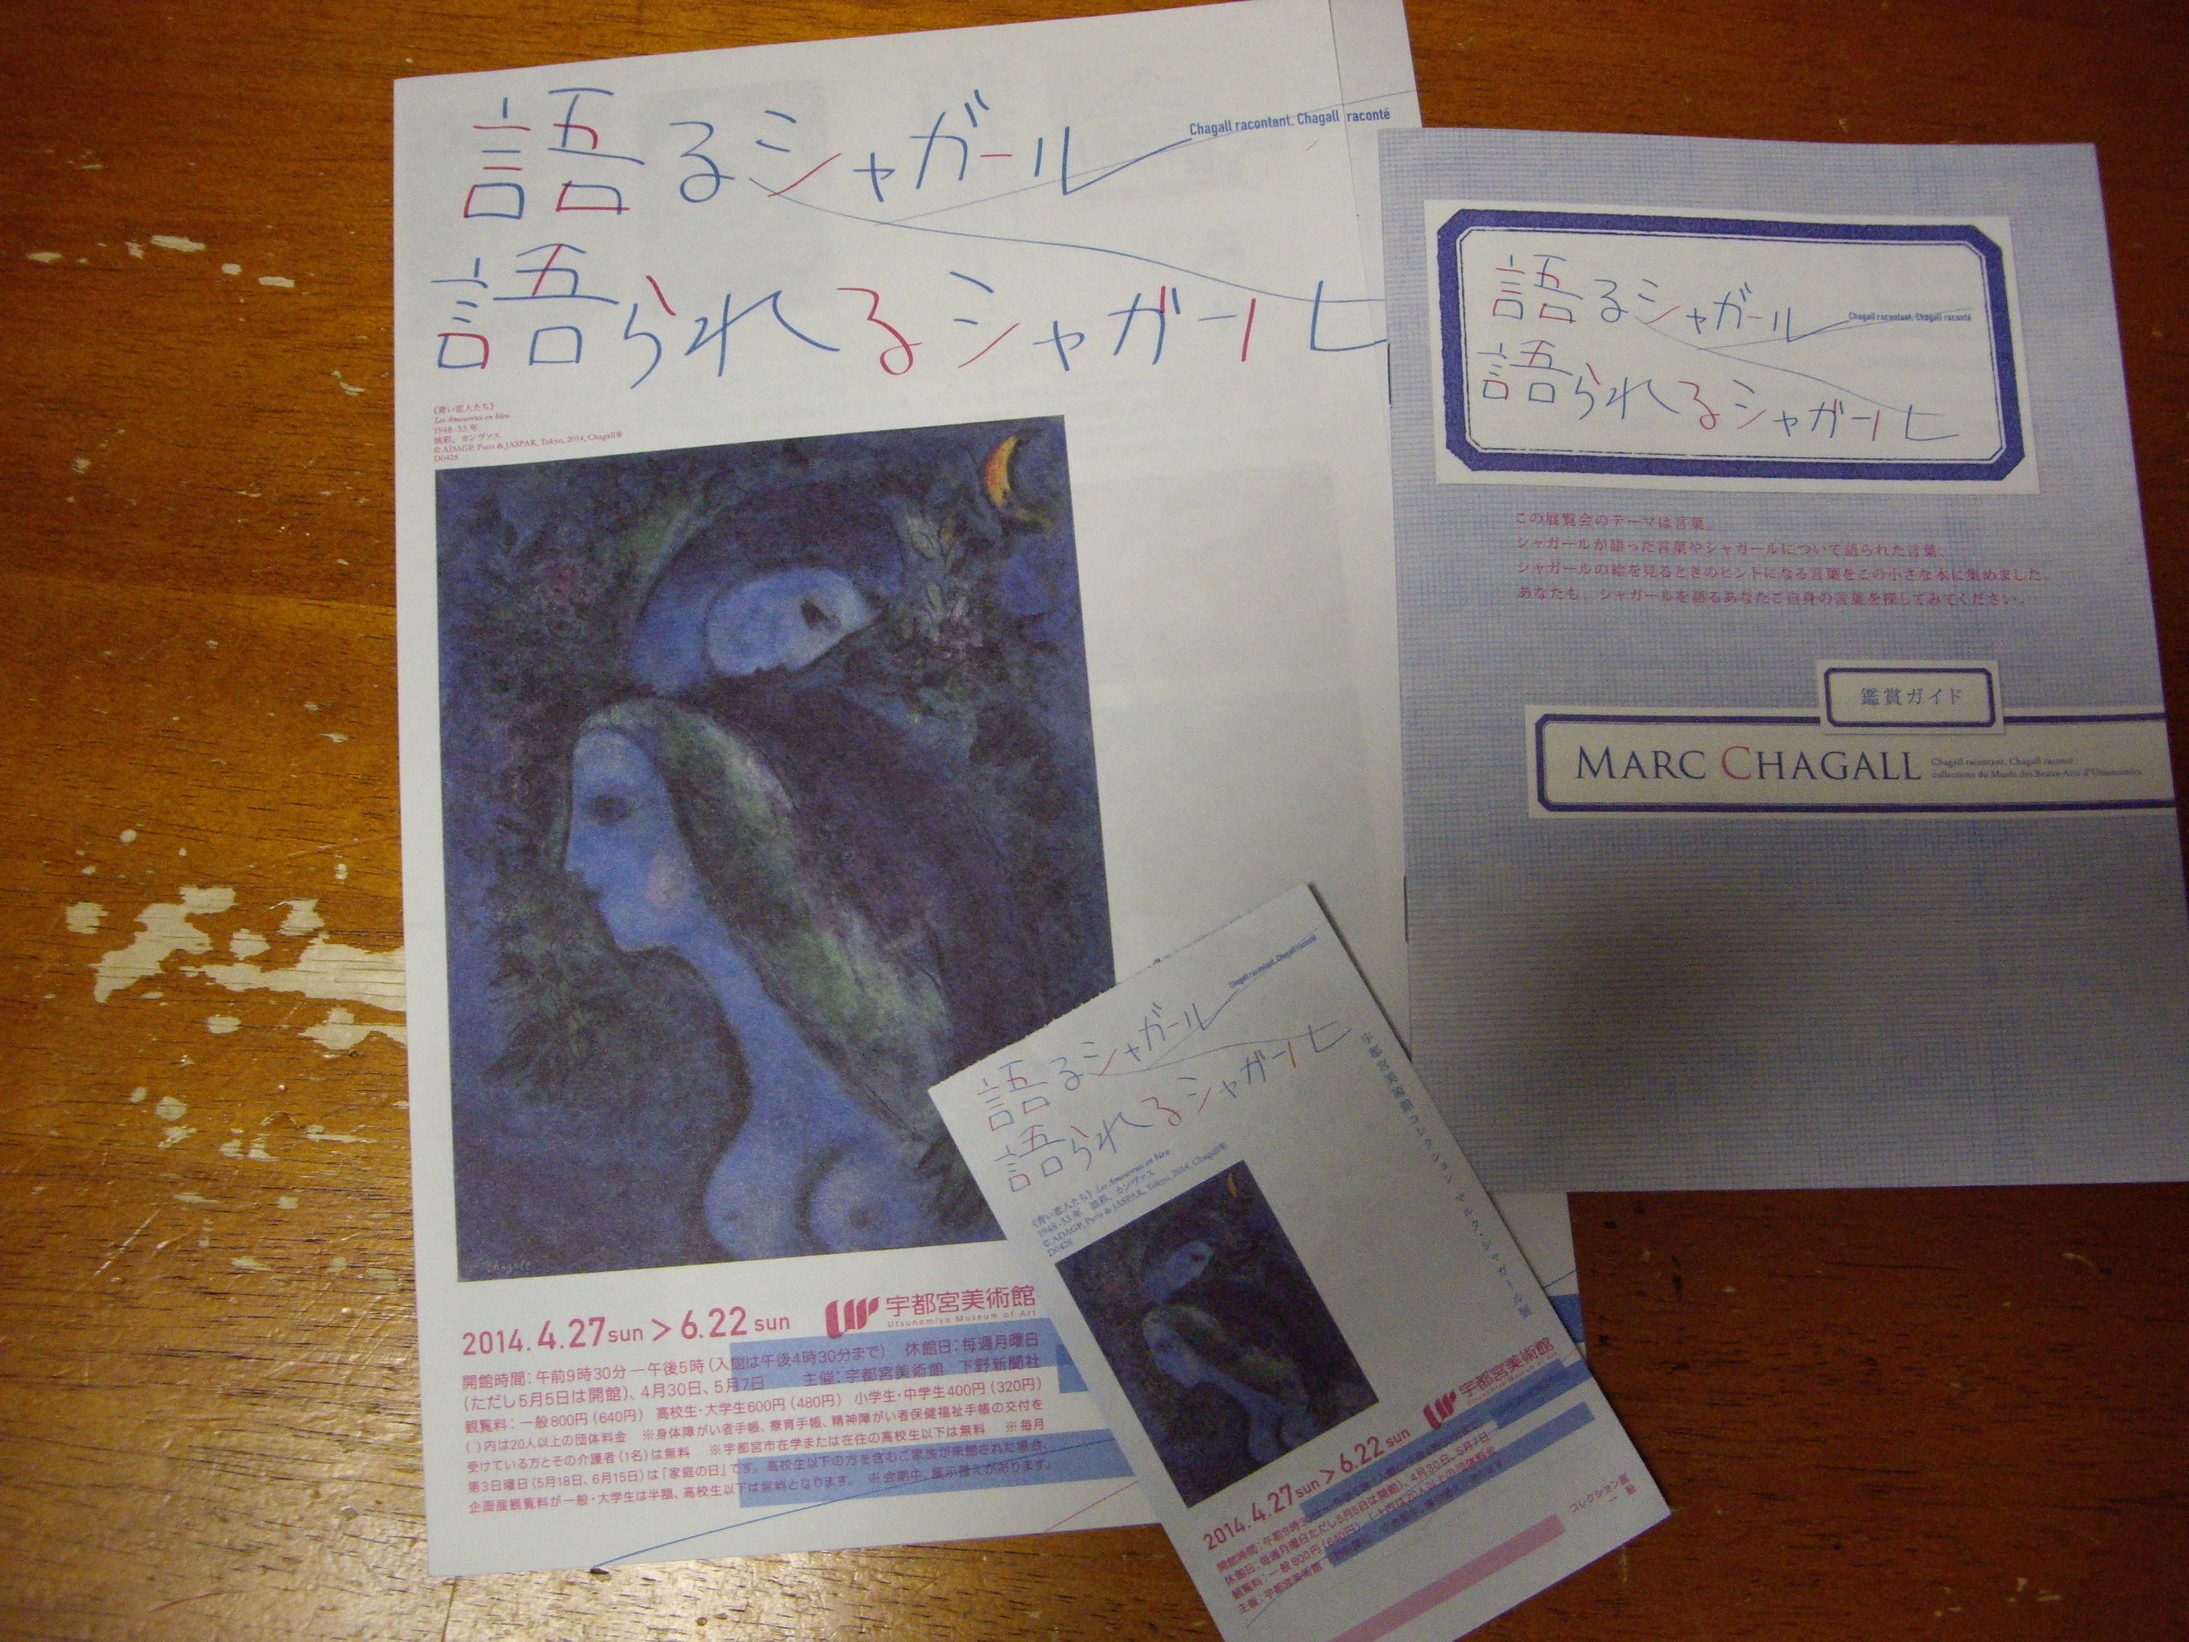 語るシャガール
Chagall racontant, Chagall raconté
語られるシャガール
《青い恋人たち》
Les Amoureux en bleu
1948-53年
油彩、カンヴァス
© ADAGP, Paris & JASPAR, Tokyo, 2014, Chagall®
D0428
Chagall
2014.4.27sun > 6.22 sun
宇都宮美術館
Utsunomiya Museum of Art
開館時間：午前9時30分—午後5時（入館は午後4時30分まで） 休館日：毎週月曜日
（ただし5月5日は開館）、4月30日、5月7日 主催：宇都宮美術館 下野新聞社
観覧料：一般800円（640円） 高校生・大学生600円（480円） 小学生・中学生400円（320円）
（ ）内は20人以上の団体料金 ※身体障がい者手帳、療育手帳、精神障がい者保健福祉手帳の交付を
受けている方とその介護者（1名）は無料 ※宇都宮市在学または在住の高校生以下は無料 ※毎月
第3日曜日（5月18日、6月15日）は「家庭の日」です。高校生以下の方を含むご家族が来館された場合、
企画展観覧料が一般・大学生は半額、高校生以下は無料となります。 ※会期中、展示替えがあります。
語るシャガール
Chagall racontant, Chagall raconté
語られるシャガール
この展覧会のテーマは言葉。
シャガールが語った言葉やシャガールについて語られた言葉、
シャガールの絵を見るときのヒントになる言葉をこの小さな本に集めました。
あなたも、シャガールを語るあなたご自身の言葉を探してみてください。
鑑賞ガイド
MARC CHAGALL
Chagall racontant, Chagall raconté :
collections du Musée des Beaux-Arts d'Utsunomiya
Chagall racontant, Chagall raconté
語るシャガール
語られるシャガール
宇都宮美術館コレクション マルク・シャガール展
《青い恋人たち》 Les Amoureux en bleu
1948-53年 油彩、カンヴァス
© ADAGP, Paris & JASPAR, Tokyo, 2014, Chagall®
D0428
2014.4.27sun > 6.22 sun
宇都宮美術館
開館時間：午前9時30分
休館日：毎週月曜日（ただし5月5日は開館）、4月30日、5月7日
観覧料：一般800円（640円） （ ）内は20人以上の団体料金
主催：宇都宮美術館
コレクション展
一般